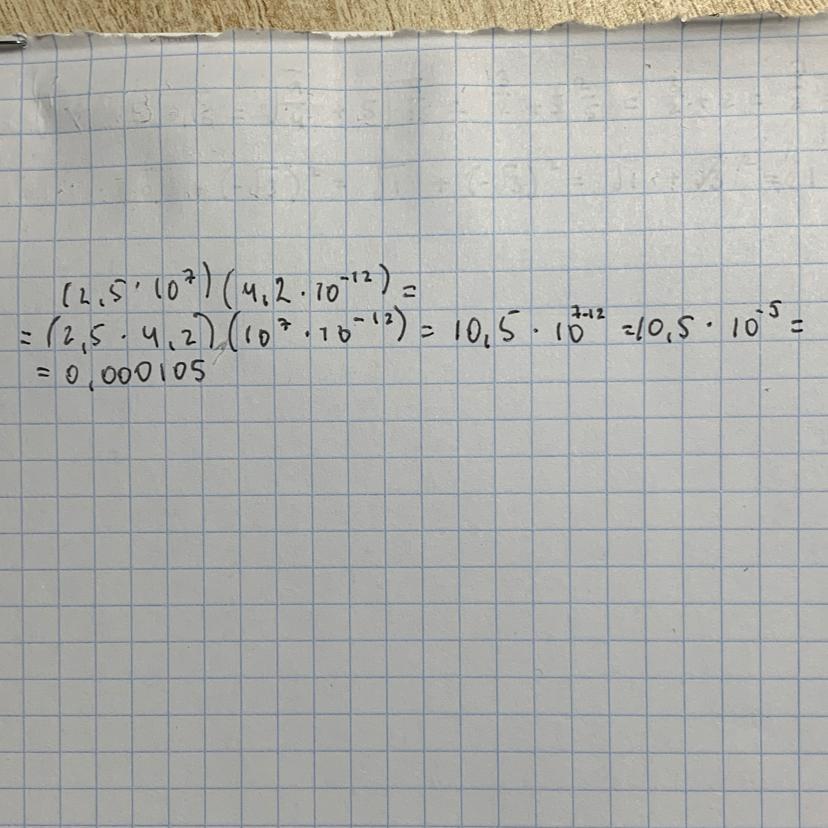 (2,5 · 10⁷)(4,2 · 10⁻¹²) =
= (2,5 · 4,2).(10⁷ · 10⁻¹²) = 10,5 · 10⁷⁻¹² = 10,5 · 10⁻⁵ =
= 0,000105